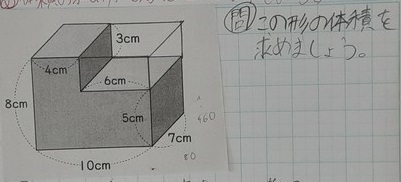 問 この形の体積を
求めましょう。
3cm
4cm
6cm
8cm
5cm
7cm
10cm
80